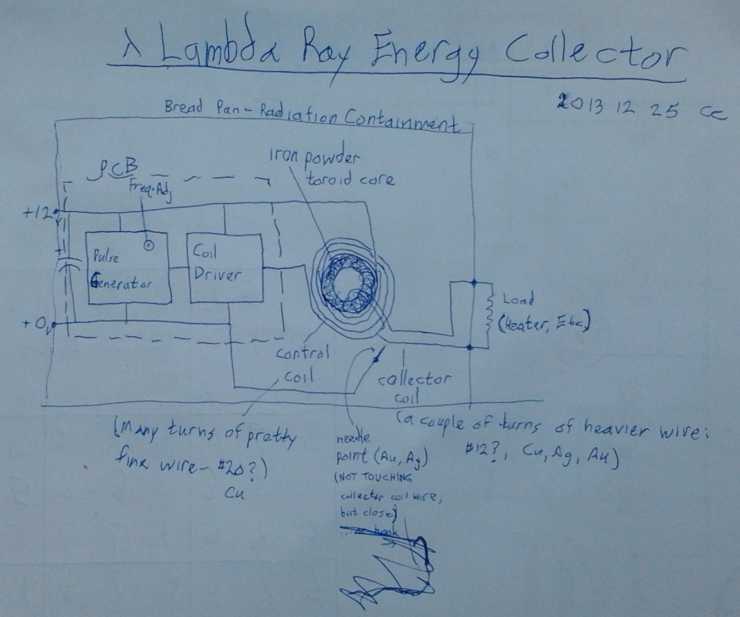 λ Lambda Ray Energy Collector
2013 12 25 CC
Bread Pan - Radiation Containment
PCB
Freq. Adj
iron powder
toroid core
+12
Pulse
Generator
Coil
Driver
Load
(Heater, Etc)
+0
control
coil
collector
coil
(a couple of turns of heavier wire:
#12?, Cu, Ag, Au)
(Many turns of pretty
fine wire - #20?)
Cu
needle
point (Au, Ag)
(NOT TOUCHING
collector coil wire,
but close)